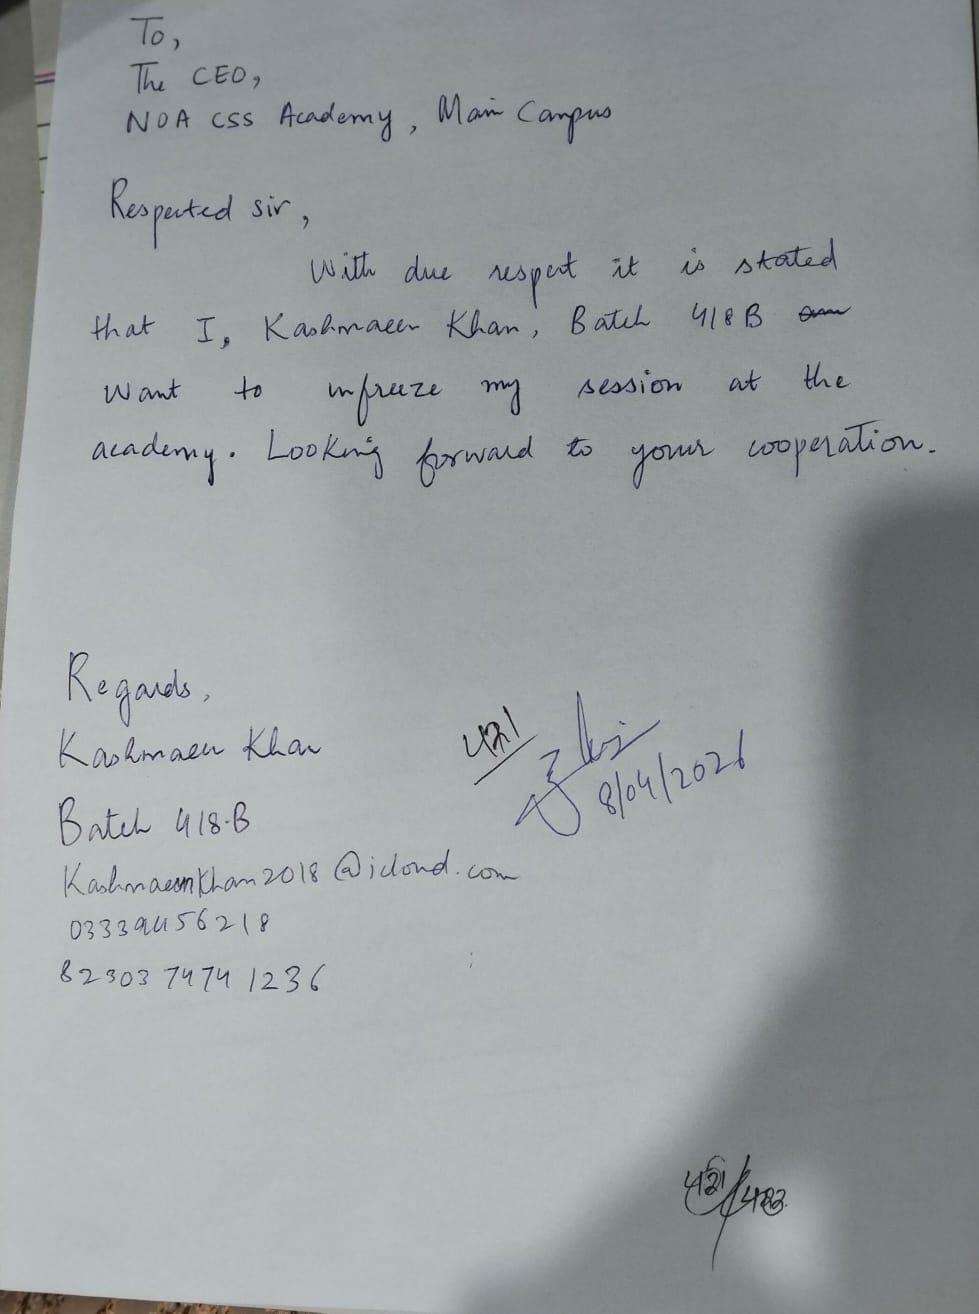 To,
The CEO,
NOA CSS Academy, Main Campus
Respected sir,
With due respect it is stated
that I, Kashmaeen Khan, Batch 418B
want to unfreeze my session at the
academy. Looking forward to your cooperation.
Regards,
Kashmaeen Khan
Batch 418-B
421
8/04/2026
KashmaeenKhan2018@icloud.com
03339456218
82303 7474 1236
421/422